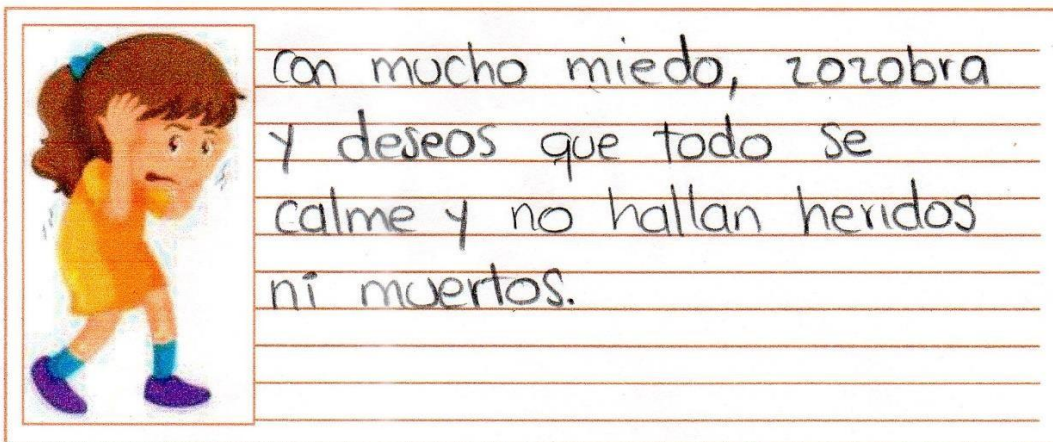 con mucho miedo, zozobra
y deseos que todo se
calme y no hallan heridos
ni muertos.